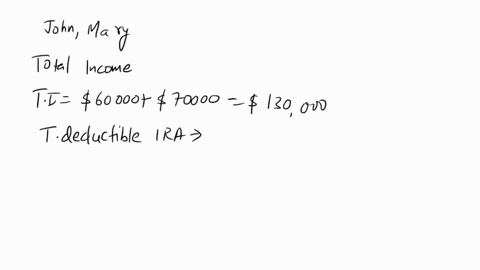 John, Mary
Total Income
T.I = $60000 + $70000 = $130,000
T.deductible IRA →